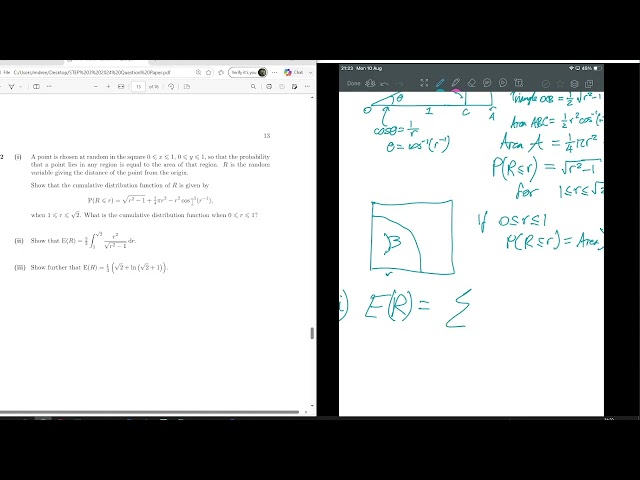 File | C:/Users/mdree/Desktop/STEP%203%202024%20Question%20Paper.pdf
Verify it's you
Copilot
13 of 16
21:23 Mon 10 Aug
45%
Done
13
2 (i) A point is chosen at random in the square 0 ⩽ x ⩽ 1, 0 ⩽ y ⩽ 1, so that the probability
that a point lies in any region is equal to the area of that region. R is the random
variable giving the distance of the point from the origin.
Show that the cumulative distribution function of R is given by
P(R ⩽ r) = √(r² − 1) + ¼πr² − r² cos⁻¹(r⁻¹),
when 1 ⩽ r ⩽ √2. What is the cumulative distribution function when 0 ⩽ r ⩽ 1?
(ii) Show that E(R) = ½ ∫₁^√2 r²/√(r² − 1) dr.
(iii) Show further that E(R) = ⅓(√2 + ln(√2 + 1)).
O θ 1 C A
cosθ = 1/r
θ = cos⁻¹(r⁻¹)
Triangle OCB = ½√r²-1
Area ABC = ½r²cos⁻¹
Area A = ¼πr²
P(R≤r) = √r²-1
for 1≤r≤√2
B
r
if 0≤r≤1
P(R≤r) = Area
i) E(R) = Σ